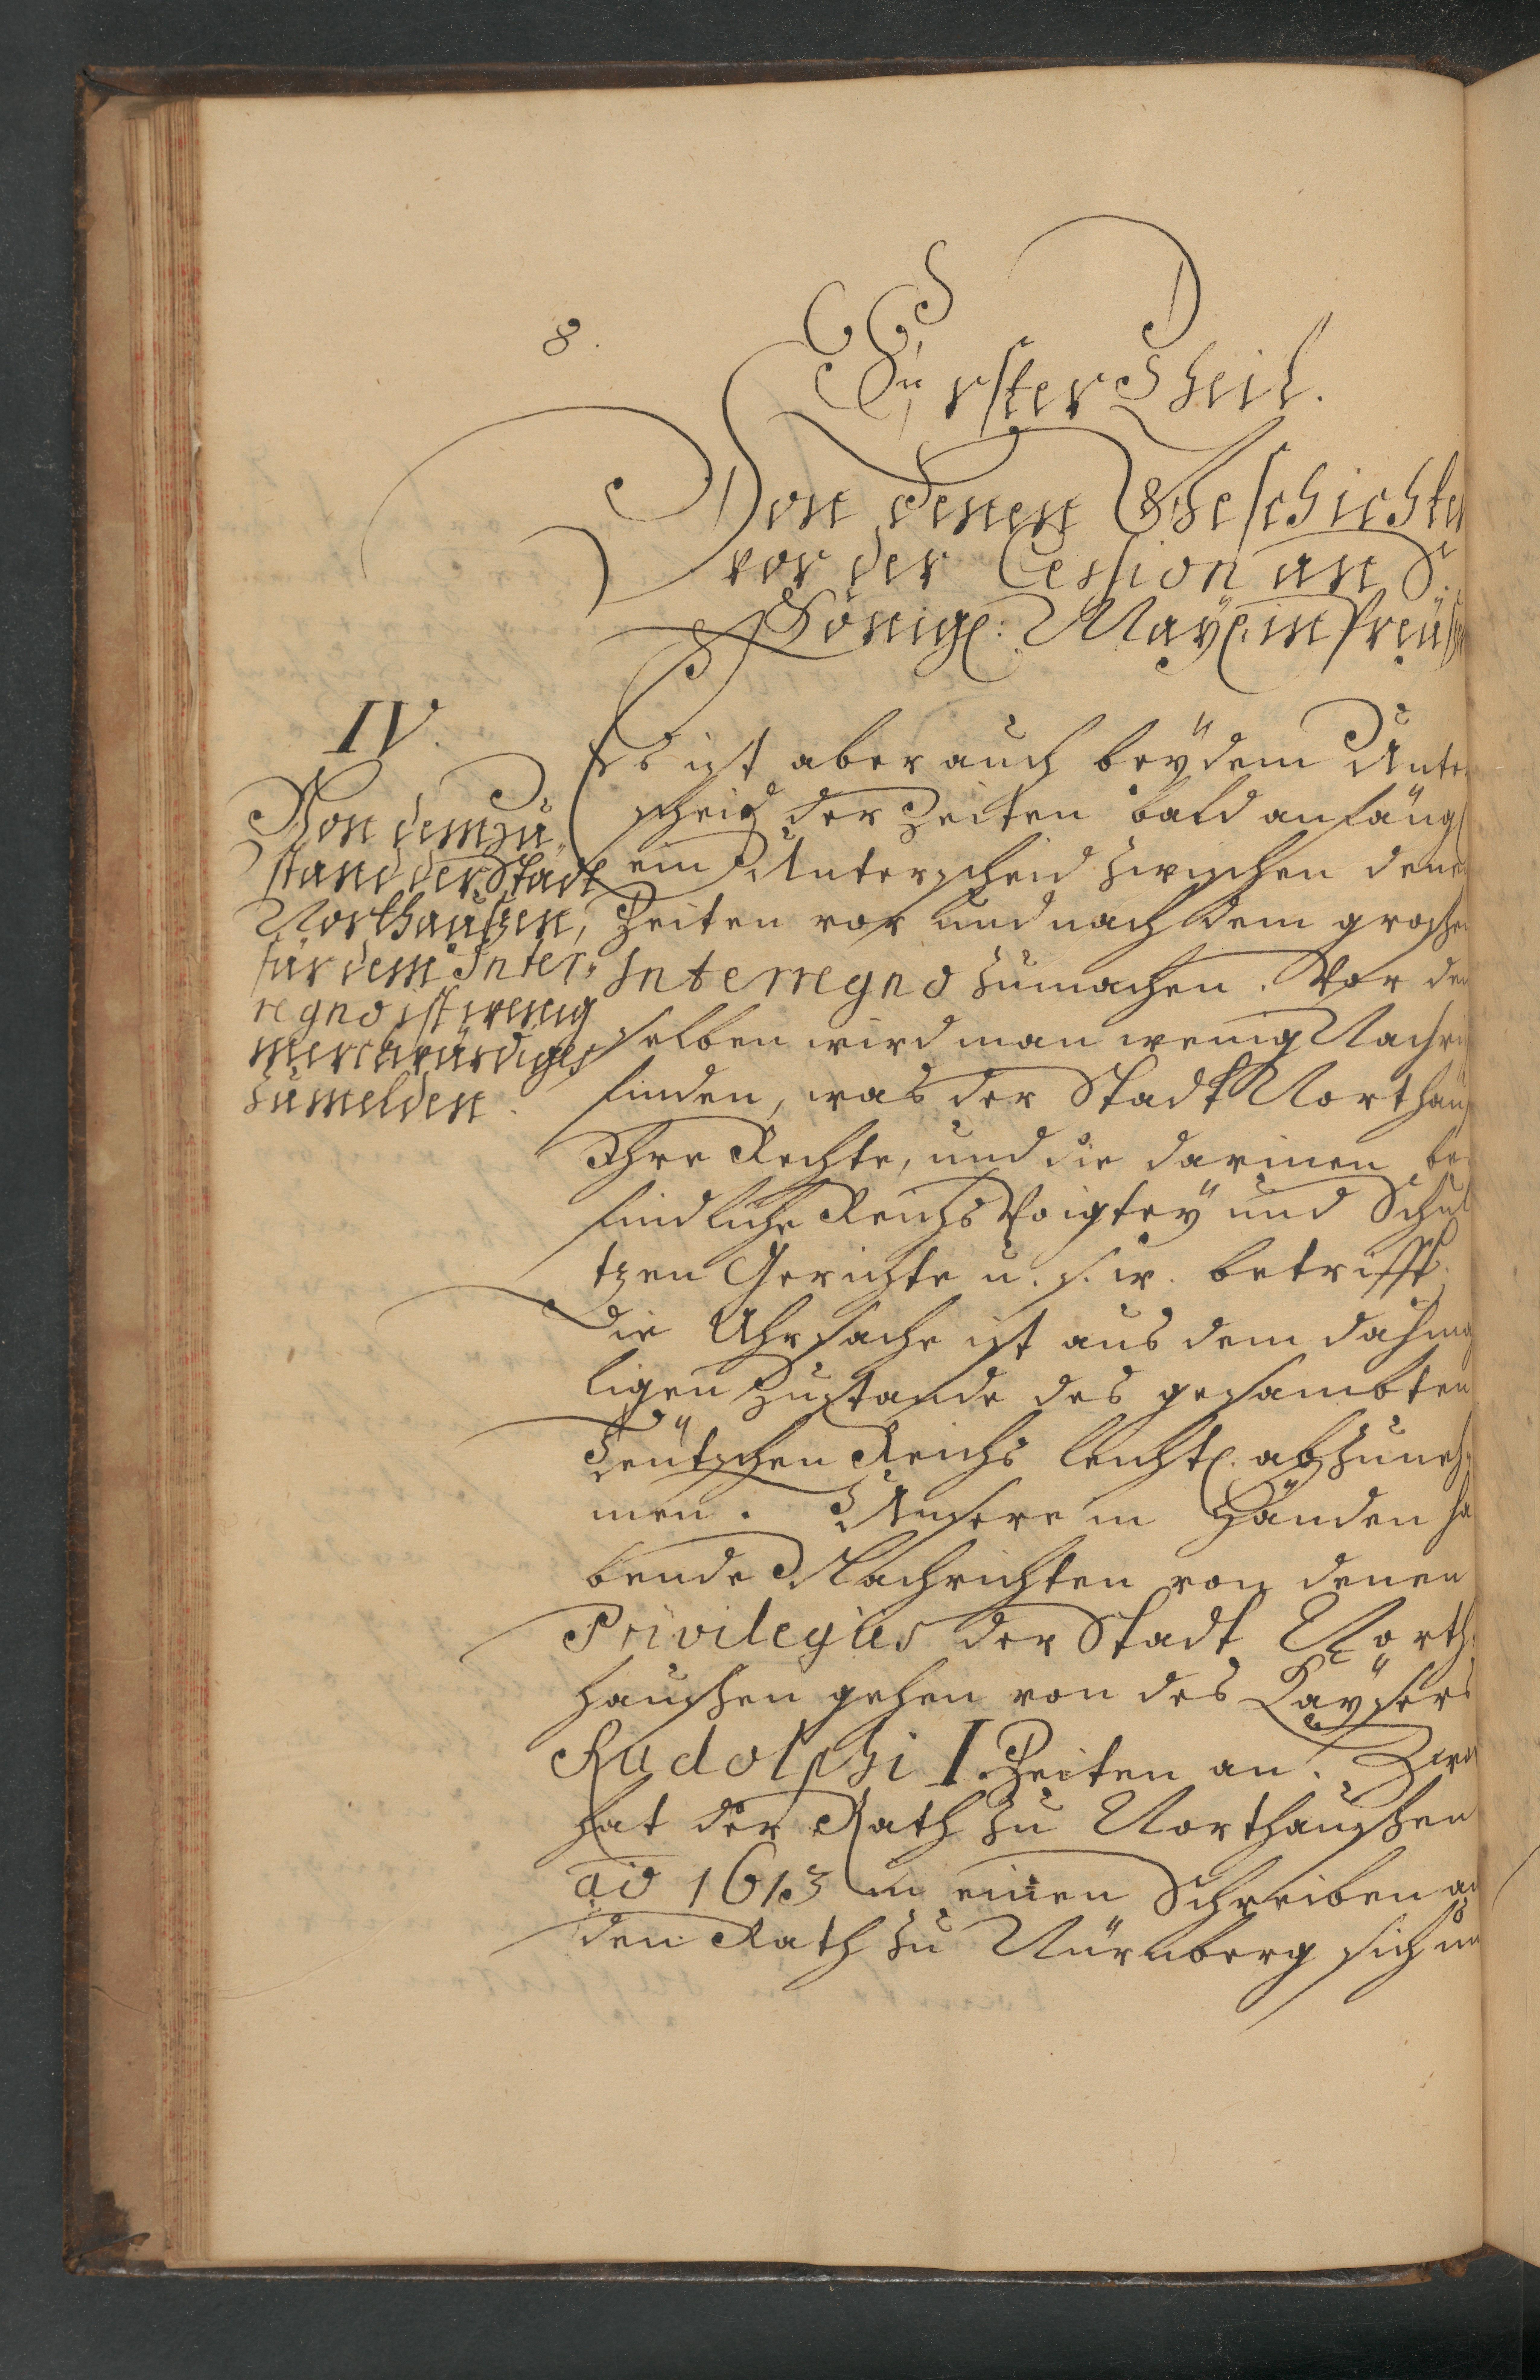 8.
Erster Theil.
Von denen Geschichten
vor der Cession an S.
Königl: Mayl. in Preuß
IV.
Von dem Zu„
stand der Stadt
Northaußen,
für dem Inter„
regno ist wenig
merckwürdiges
zu melden.
Es ist aber auch beÿ dem Unter
scheid der Zeiten bald anfängl
ein Unterscheid zwischen denen
Zeiten vor und nach dem großen
Interregno zumachen. Vor dem
selben wird man wenig Nachri
finden, was der Stadt Northauß
Ihre Rechte, und die darinnen be
findliche Reichs Voigteÿ und Schul
tzen Gerichte u. s. w. betrifft.
Die Uhrsache ist aus dem dahma
ligen Zustande des gesambten
Teütschen Reichs leichtl. abzuneh„
men. Unsere in Händen ha
bende Nachrichten von denen
Privilegiis der Stadt North„
haußen gehen von des Kaÿsers
Rudolphi I. Zeiten an. Zwar
hat der Rath zu Northaußen
ao 1613 in einen Schreiben an
den Rath zu Nürnberg sich un